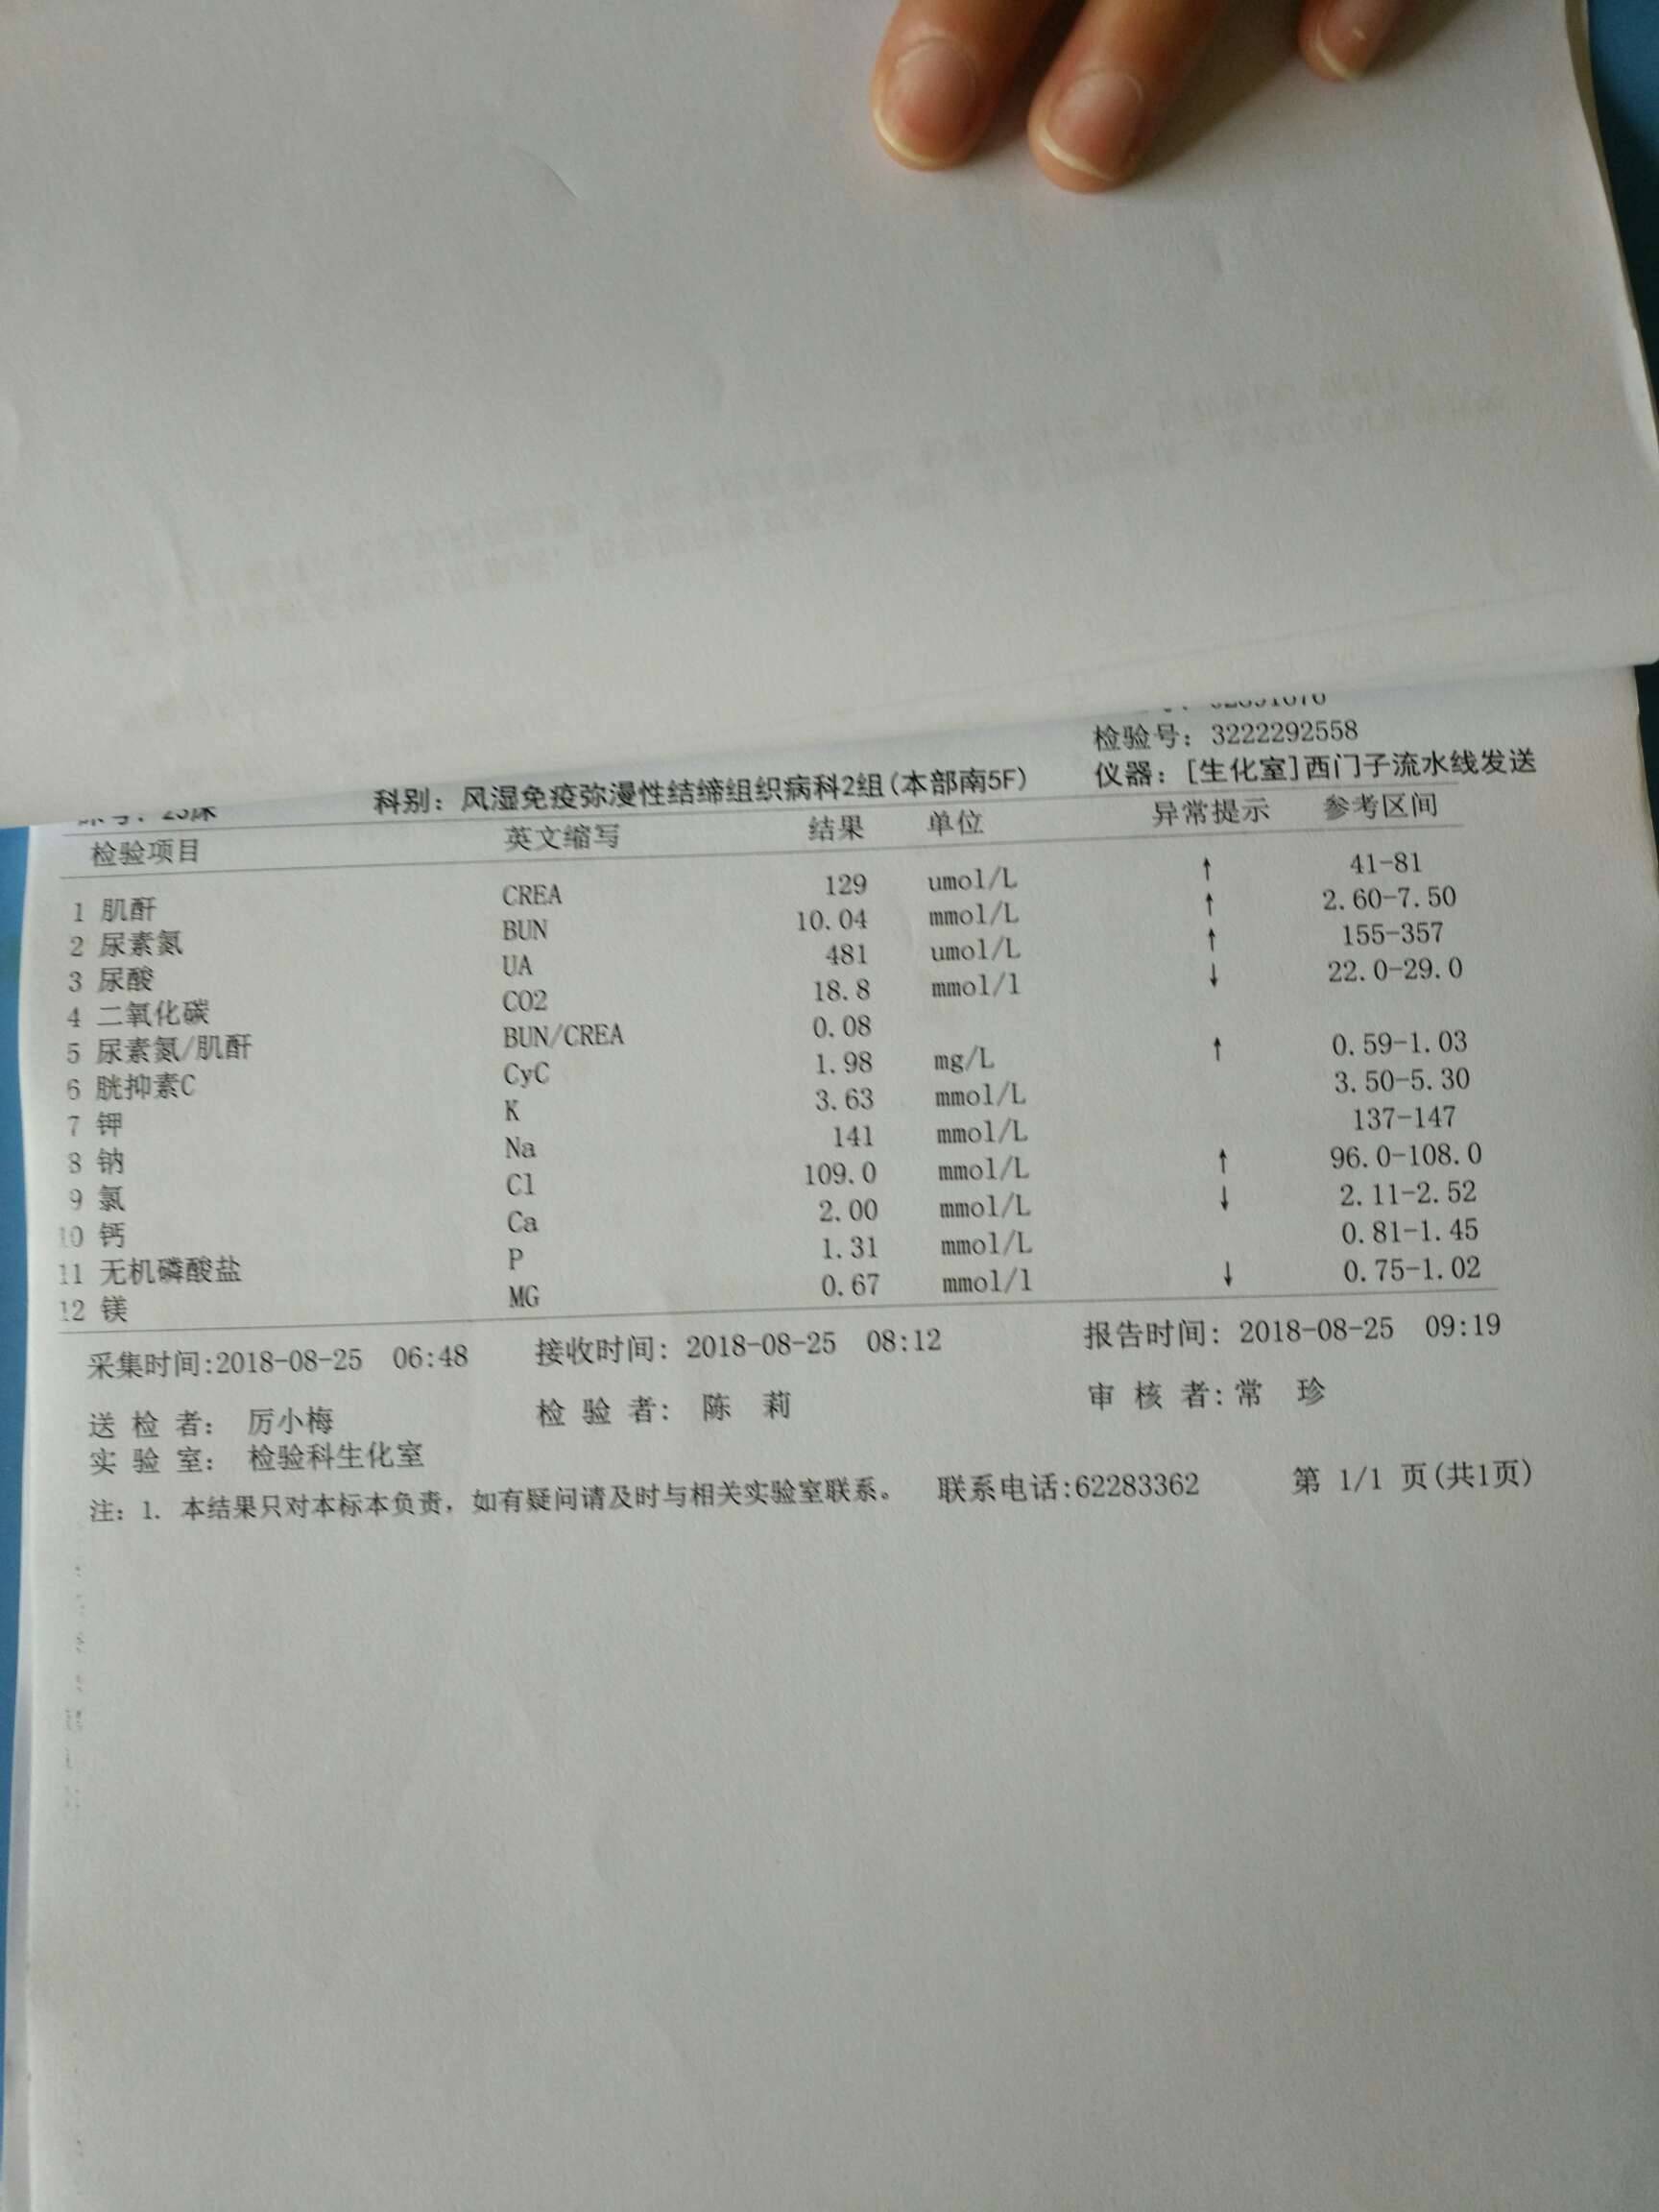 检验号: 3222292558
科别: 风湿免疫弥漫性结缔组织病科2组(本部南5F) 仪器: [生化室]西门子流水线发送
检验项目 英文缩写 结果 单位 异常提示 参考区间
1 肌酐 CREA 129 umol/L ↑ 41-81
2 尿素氮 BUN 10.04 mmol/L ↑ 2.60-7.50
3 尿酸 UA 481 umol/L ↑ 155-357
4 二氧化碳 CO2 18.8 mmol/l ↓ 22.0-29.0
5 尿素氮/肌酐 BUN/CREA 0.08
6 胱抑素C CyC 1.98 mg/L ↑ 0.59-1.03
7 钾 K 3.63 mmol/L 3.50-5.30
8 钠 Na 141 mmol/L 137-147
9 氯 Cl 109.0 mmol/L ↑ 96.0-108.0
10 钙 Ca 2.00 mmol/L ↓ 2.11-2.52
11 无机磷酸盐 P 1.31 mmol/L 0.81-1.45
12 镁 MG 0.67 mmol/l ↓ 0.75-1.02
采集时间:2018-08-25 06:48 接收时间: 2018-08-25 08:12 报告时间: 2018-08-25 09:19
送 检 者: 厉小梅 检 验 者: 陈 莉 审 核 者: 常 珍
实 验 室: 检验科生化室
注: 1. 本结果只对本标本负责, 如有疑问请及时与相关实验室联系。 联系电话:62283362 第 1/1 页(共1页)